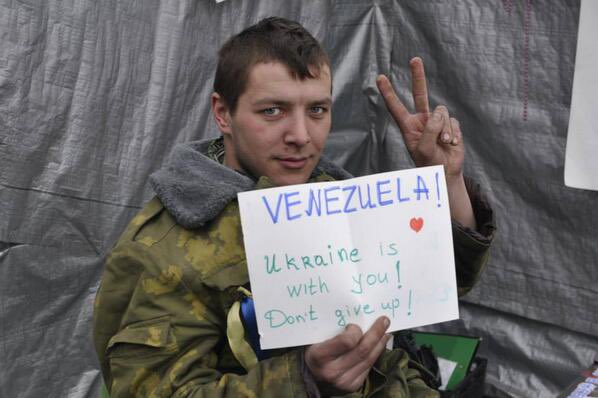 VENEZUELA!
Ukraine is
with you!
Don't give up!